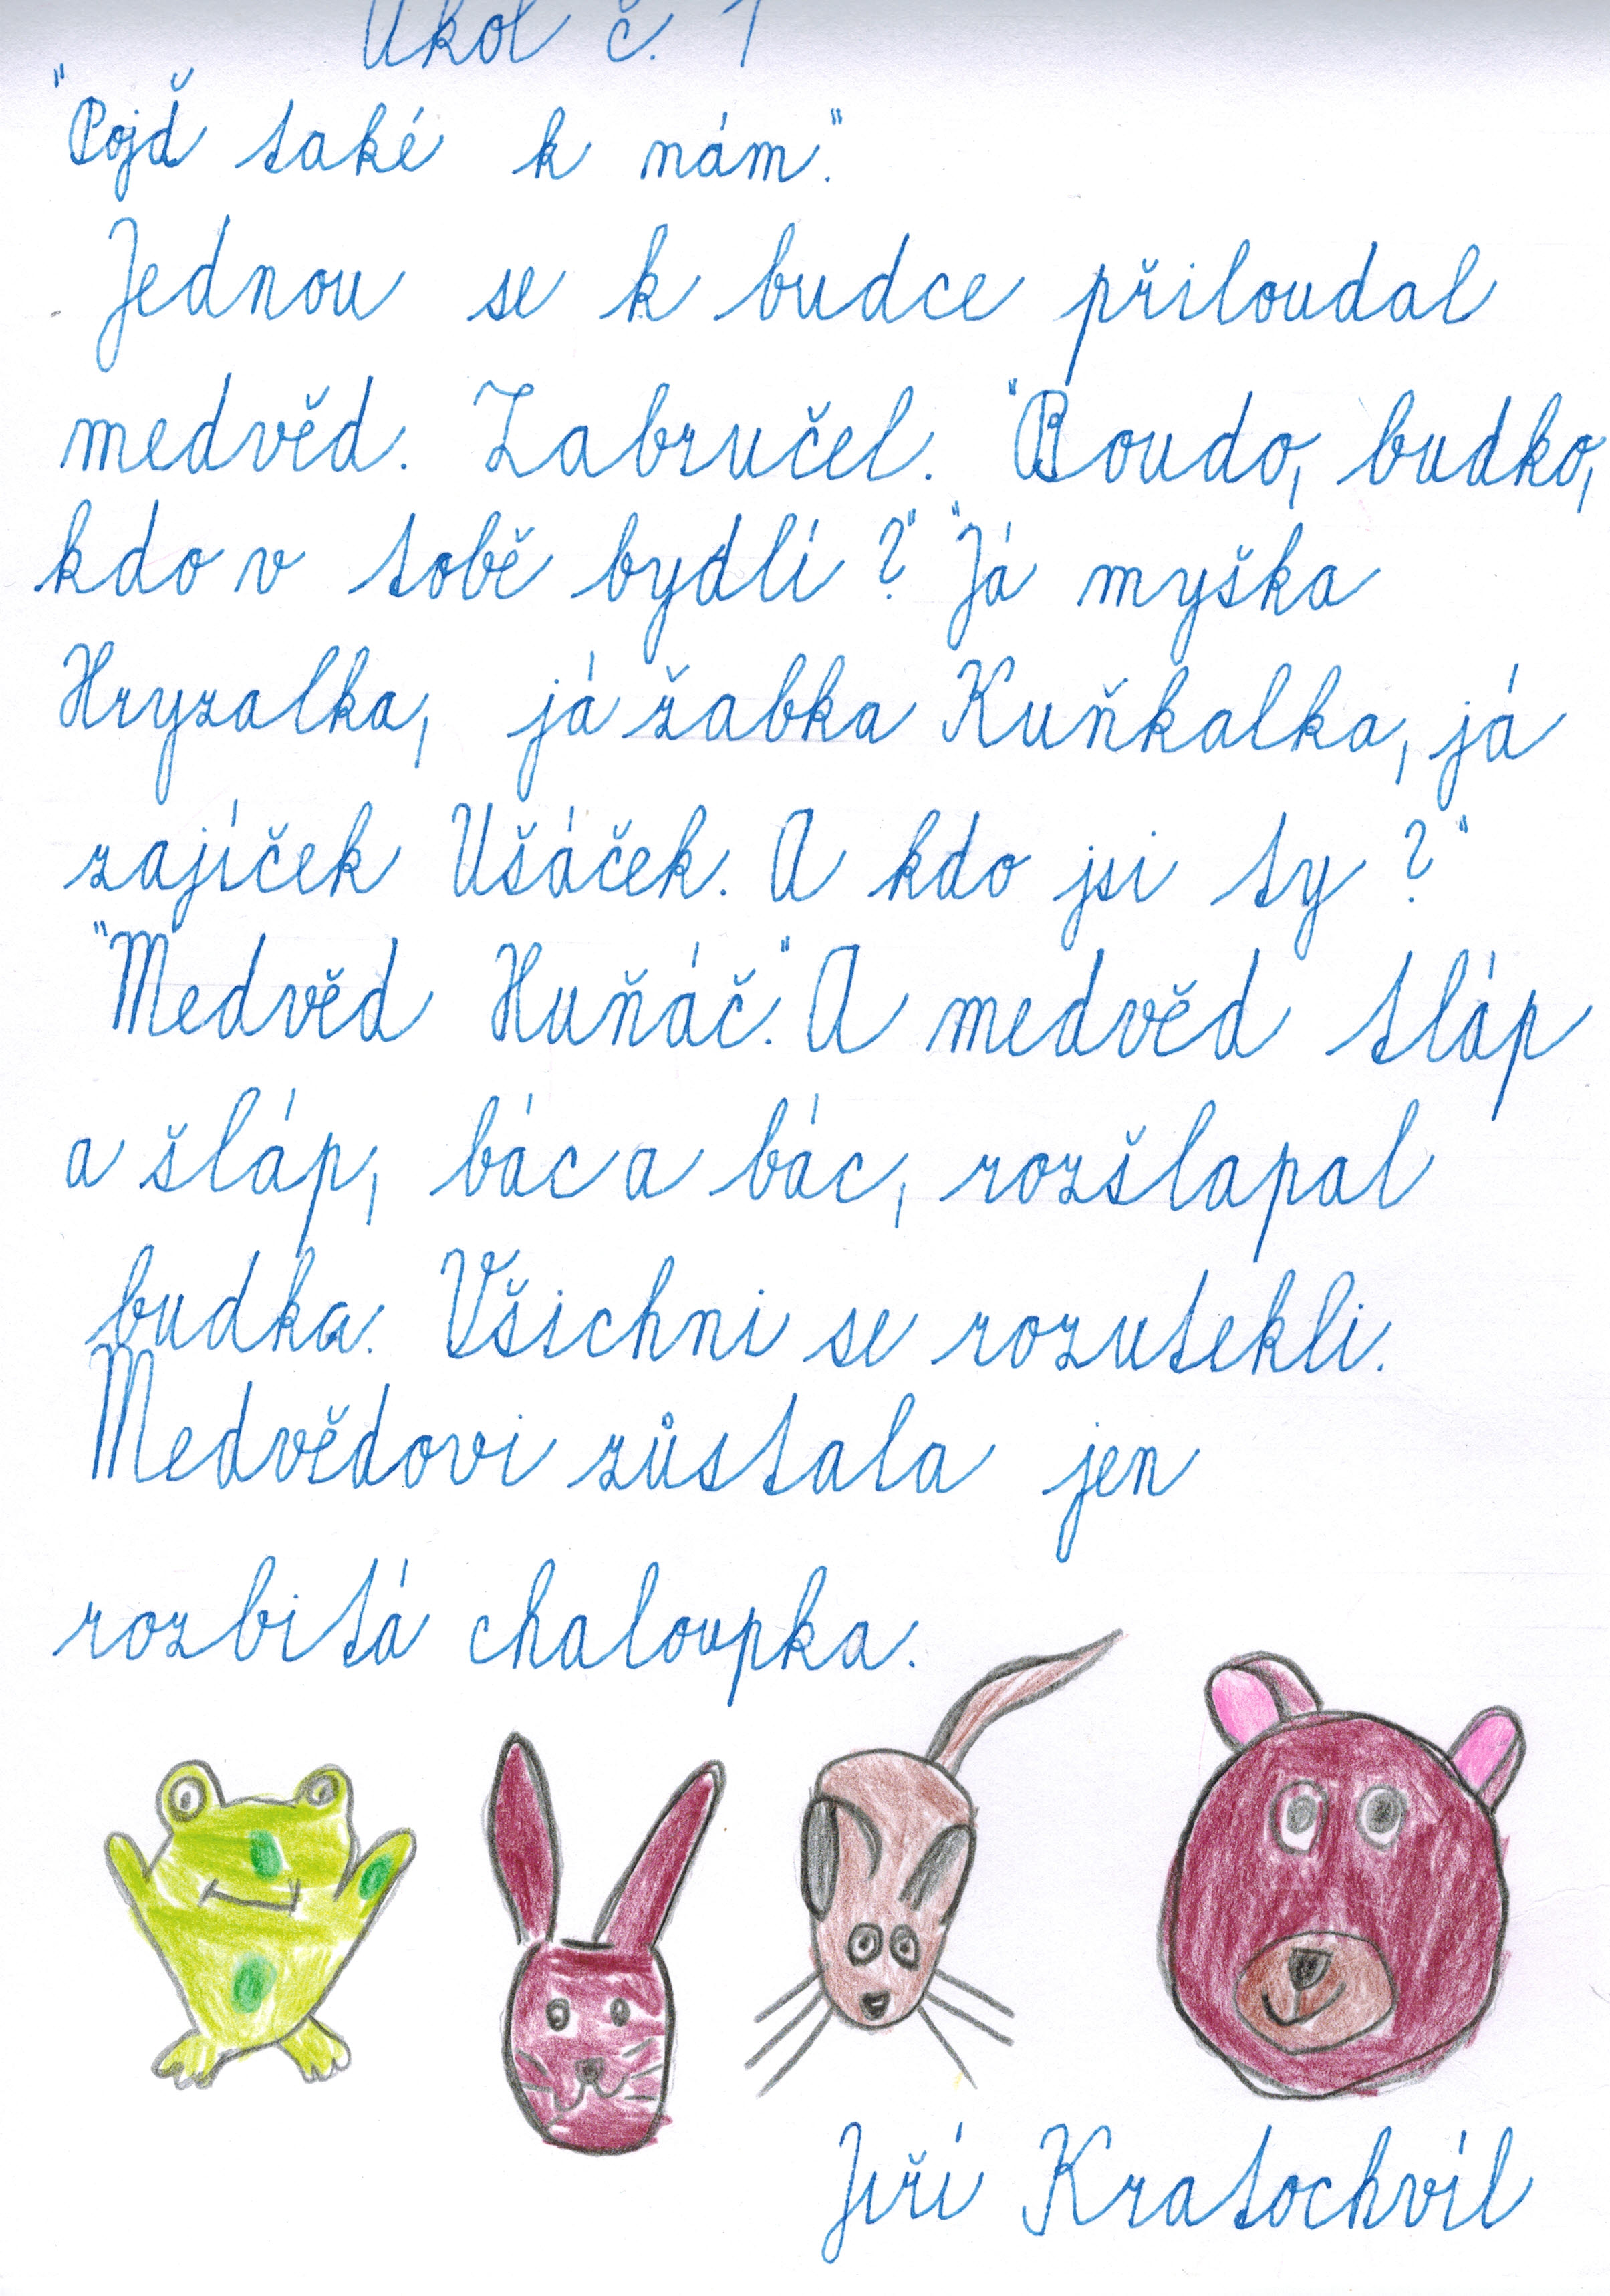 Úkol č. 1
"Pojď také k nám."
Jednou se k budce přiloudal
medvěd. Zabručel. "Boudo, budko,
kdo v tobě bydlí?" "Já myška
Hryzalka, já žabka Kuňkalka, já
zajíček Ušáček. A kdo jsi ty?"
"Medvěd Huňáč." A medvěd tláp
a šláp, bác a bác, rozšlapal
budka. Všichni se rozutekli.
Medvědovi zůstala jen
rozbitá chaloupka.
Jiří Kratochvíl